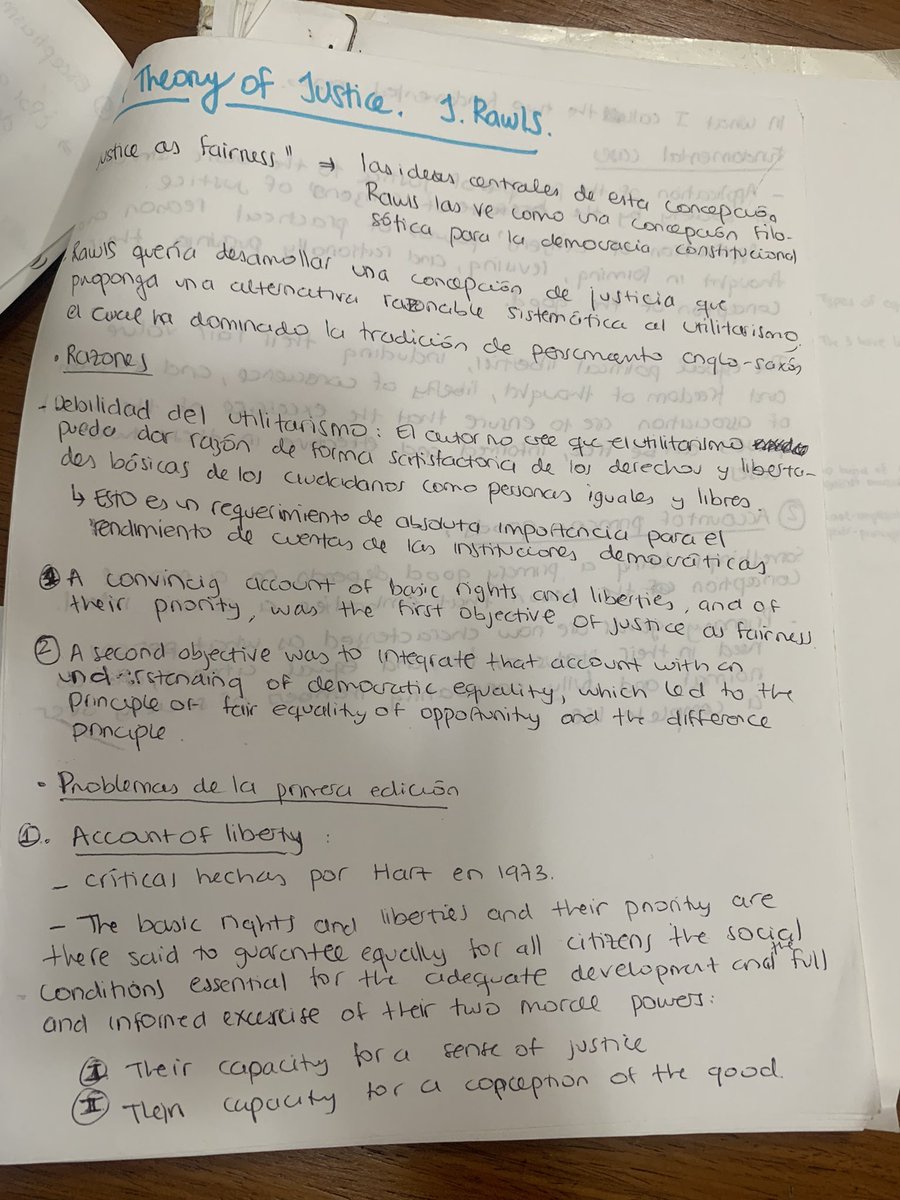 Theory of Justice. J. Rawls.
ustice as fairness" → las ideas centrales de esta concepción
Rawls las ve como una concepción filo-
sófica para la democracia constitucional
Rawls quería desarrollar una concepción de justicia que
proponga una alternativa razonable sistemática al utilitarismo,
el cual ha dominado la tradición de pensamiento anglo-saxón
· Razones
- Debilidad del utilitarismo: El autor no cree que el utilitarismo
pueda dar razón de forma satisfactoria de los derechos y liberta-
des básicas de los ciudadanos como personas iguales y libres.
↳ Esto es un requerimiento de absoluta importancia para el
rendimiento de cuentas de las instituciones democráticas
① A convincig account of basic rights and liberties, and of
their priority, was the first objective of justice as fairness
② A second objective was to integrate that account with an
understanding of democratic equality, which led to the
principle of fair equality of opportunity and the difference
principle.
· Problemas de la primera edición
①. Account of liberty :
- críticas hechas por Hart en 1973.
- The basic rights and liberties and their priority are
there said to guarantee equally for all citizens the social
conditions essential for the adequate development and the full
and informed excercise of their two morale powers:
Ⓘ Their capacity for a sense of justice
Ⓘ︎Ⓘ Their capacity for a conception of the good.